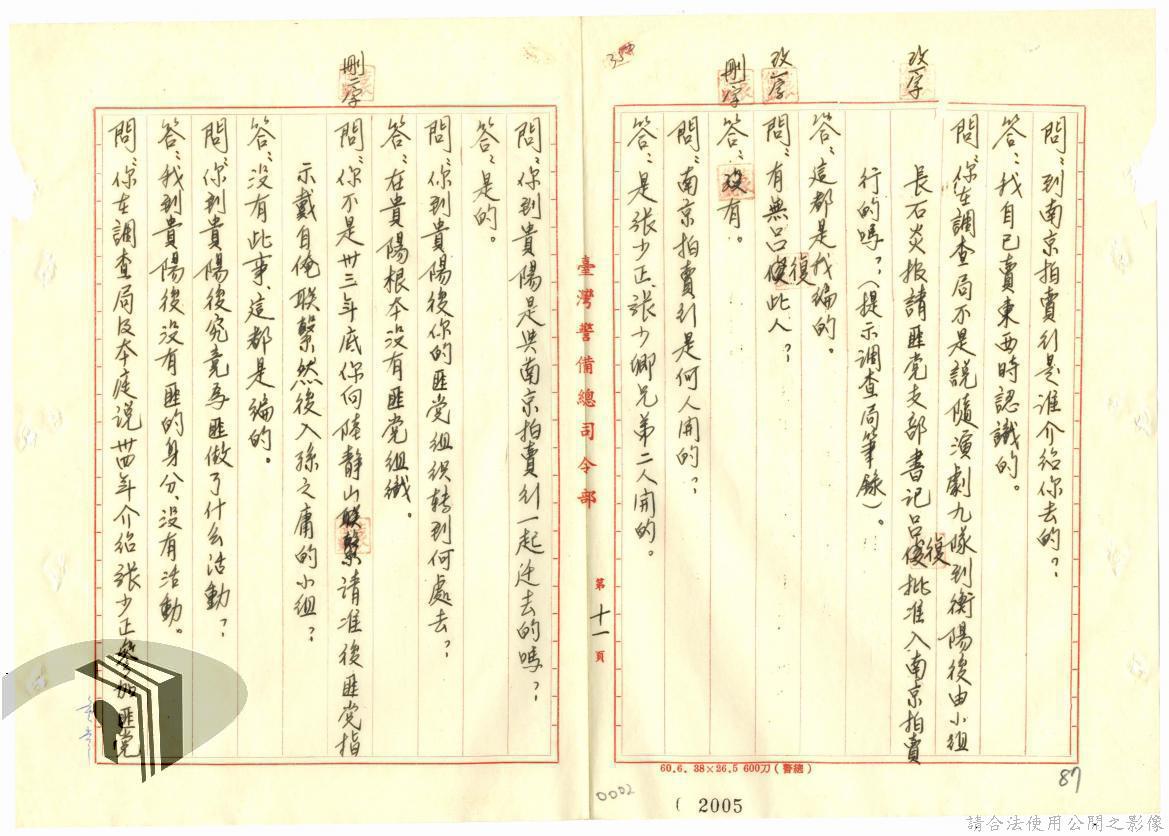 問：到南京拍賣行是誰介紹你去的？
答：我自己賣東西時認識的。
問：你在調查局不是說隨演劇九隊到衡陽後由小組
長石炎报請匪党支部書记吕復批准入南京拍賣
行的嗎？（提示調查局筆錄）。
答：這都是我編的。
問：有無吕復此人？
答：沒有。
問：南京拍賣行是何人開的？
答：是張少正、張少卿兄弟二人開的。
改一字
改一字
刪一字
臺灣警備總司令部
第十一頁
問：你到貴陽是與南京拍賣行一起迁去的嗎？
答：是的。
問：你到貴陽後你的匪党組织转到何處去？
答：在貴陽根本没有匪党組織。
問：你不是卅三年底你向陸静山請准後匪党指
示戴自俺联繫然後入孫之庸的小組？
答：没有此事、這都是編的。
問：你到貴陽後究竟為匪做了什么活動？
答：我到貴陽後没有匪的身分、没有活動。
問：你在調查局及本庭说卅四年介绍張少正參加匪党
刪二字
60.6. 38×26.5 600刀（警總）
0002
( 2005
87
請合法使用公開之影像